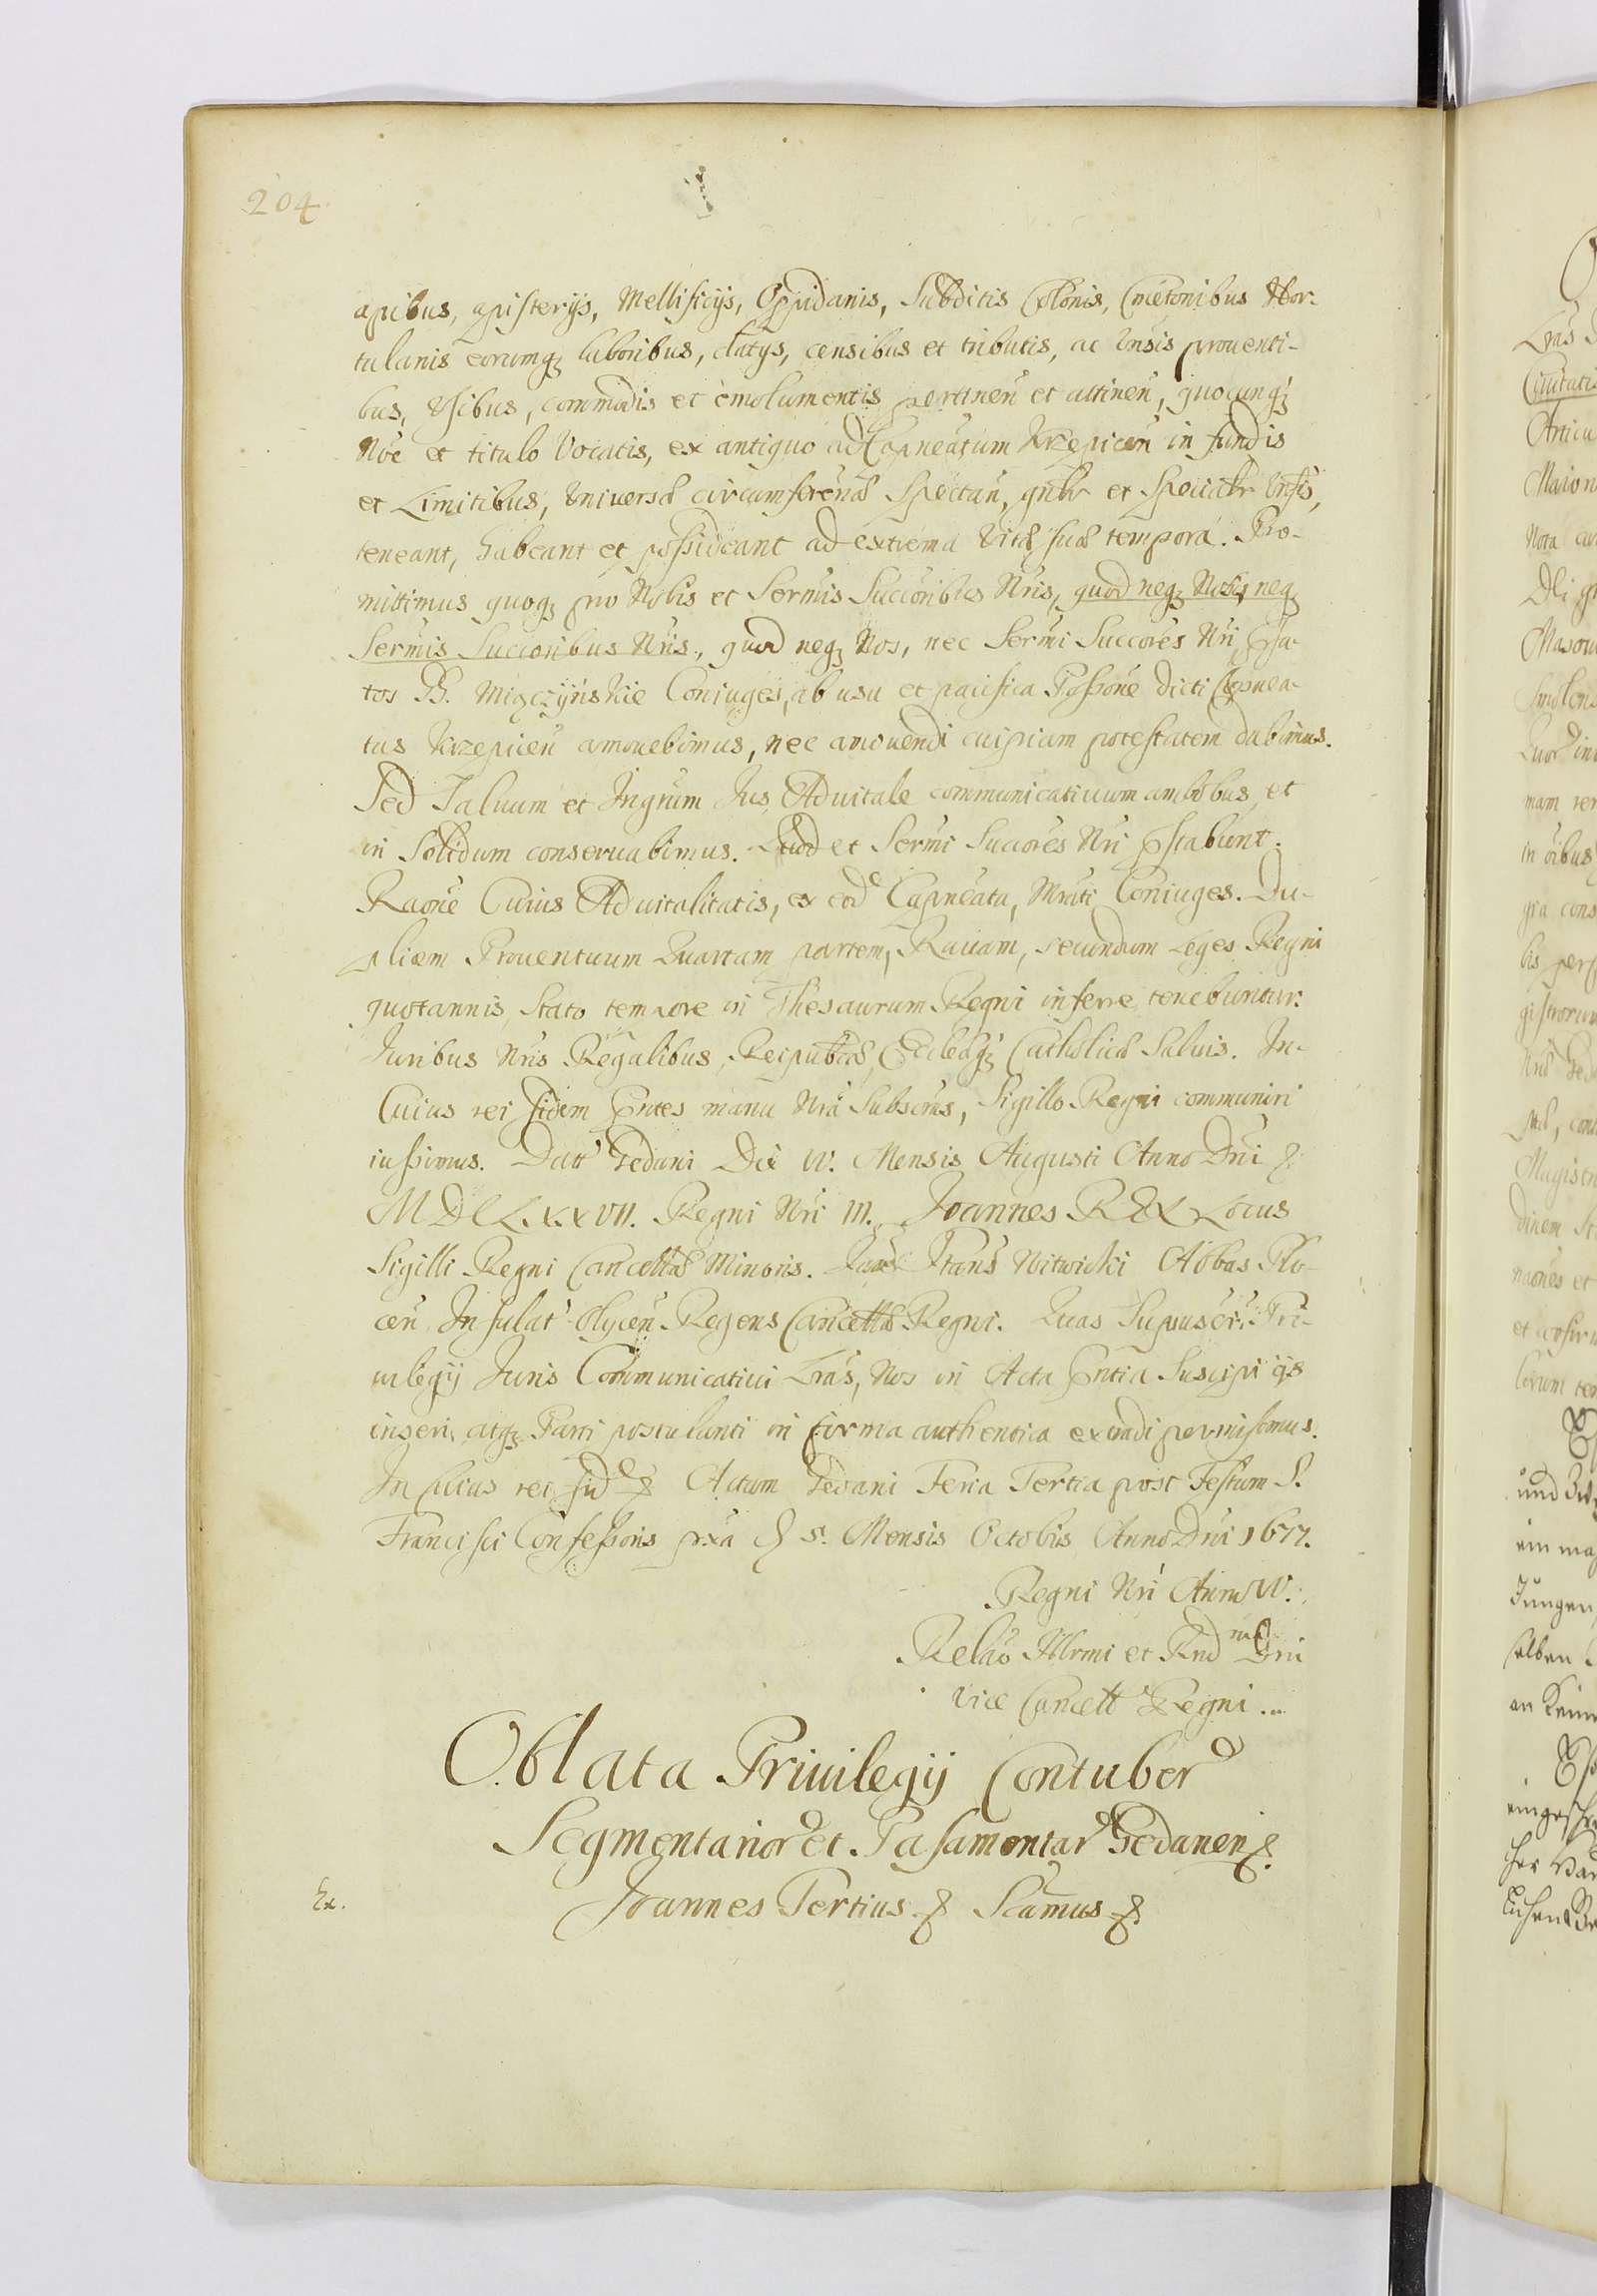 204.
apibus, apisterijs, Mellificijs, Oppidanis, Subditis Colonis, Cmetonibus Hor-
tulanis eorumq; laboribus, datijs, censibus et tributis, ac Vnsis prouenti-
bus, Vsibus, commodis et emolumentis pertineñ et attineñ, quocunq;
Nõe et titulo Vocatis, ex antiquo ad Capneatum Krzepiceñ in fundis
et Limitibus, Vniversa circumferentia Spectañ, gnlr et Specialr Vnsis,
teneant, habeant et possideant ad extrema Vitæ suæ tempora. Pro-
mittimus quoq; pro Nobis et Sermis Succoribus Nris, quod neq; Nobis, neq;
Sermis Succoribus Nris, quod neq; Nos, nec Sermi Succores Nri,
tos G. Miączyńskie Coniuges, ab usu et pacifica Possone dicti Capnea-
tus Krzepiceñ amouebimus, nec amouendi cuipiam potestatem dabimus.
Sed Saluum et Ingrum Jus Aduitale communicatiuum ambobus, et
in Solidum conseruabimus. Quod et Sermi Succores Nri pstabunt.
Raone Cuius Aduitalitatis, ex eod Capneatu, Mrati Coniuges. Du-
plicem Prouentuum Quartam partem, Rauam, secundum Leges Regni
quotannis, Stato tempore in Thesaurum Regni inferre tenebuntur.
Juribus Nris Regalibus, Reipublcæ, Ecclæq; Catholicæ Saluis. In
Cuius rei fidem Pntes manu Nra Subscras, Sigillo Regni communiri
iussimus. Datt Gedani Die IV. Mensis Augusti Anno Dni
MDCLXXVII. Regni Nri III. Joannes REX Locus
Sigilli Regni Cancellæ Minoris. Stans Witwicki Abbas Plo-
ceñ Insulat Regens Cancellæ Regni. Quas Suprascr. Pri-
uilegij Juris Communicatiui Lras, Nos in Acta Pntia Suscipi ijs
inseri, atq; Parti postulanti in forma authentica extradi permisimus.
In Cuius rei fid & Actum Gedani Feria Tertia post Festum S.
Francisci Confessoris prxa 5. Mensis Octobis Anno Dni 1677.
Regni Nri Anno IV.
Relao Illrmi et Rnd mi Dni
Vice Cancell Regni.
Oblata Priuilegij Contuber
Segmentarior et Pasamentar Gedanen &
Ex.
Joannes Tertius & Scamus &